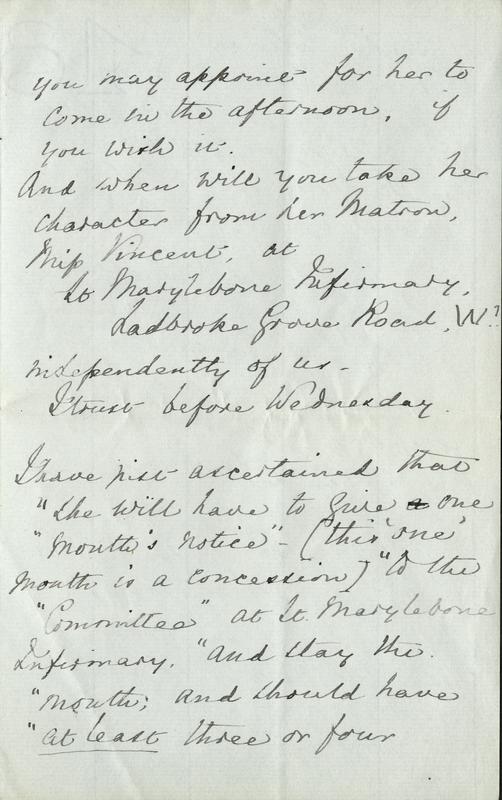 you may appoint for her to
come in the afternoon, if
you wish it.
And when will you take her
character from her Matron,
Miss Vincent, at
St Marylebone Infirmary,
Ladbroke Grove Road, W.?
independently of us -
I trust before Wednesday.
I have just ascertained that
"she will have to give a one
"month's notice" - (this 'one'
month is a concession) "to the
"Committee" at St. Marylebone
Infirmary. "and stay the
"month; and should have
"at least three or four